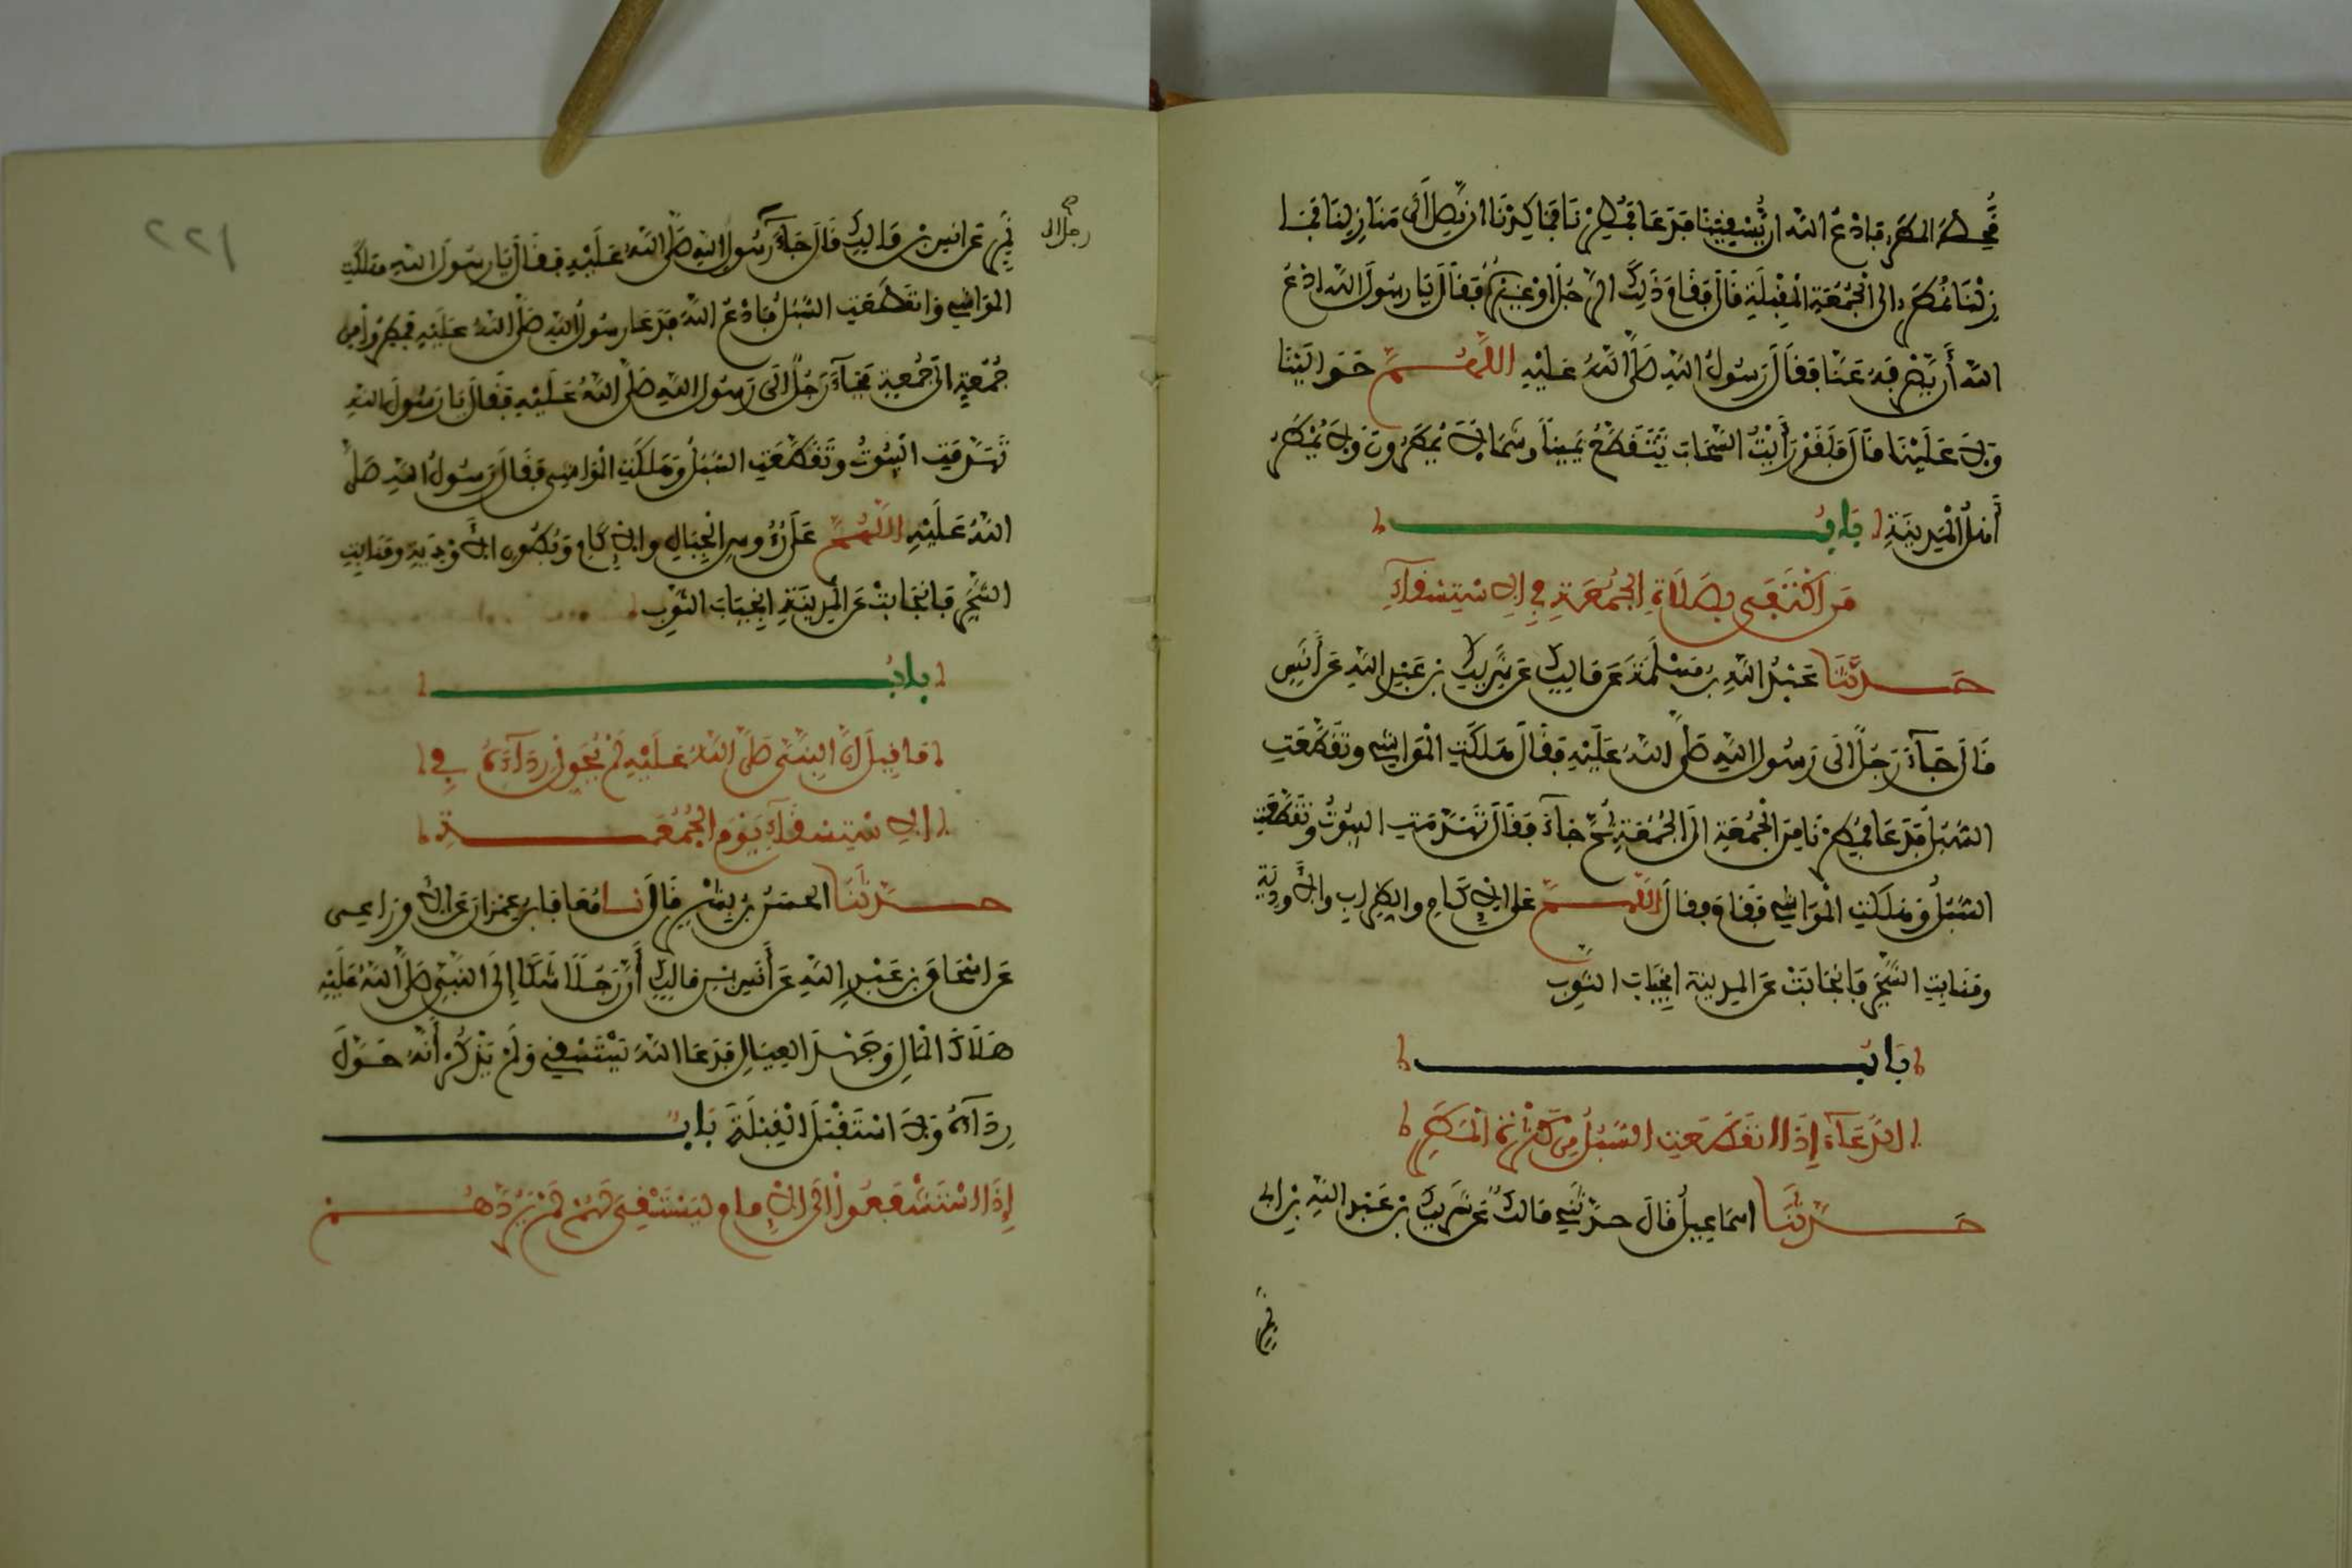 قُحِطَ المَطَرُ فَادْعُ اللَّهَ أَنْ يَسْقِيَنَا فَدَعَا فَمُطِرْنَا فَمَا كِدْنَا أن نَصِلَ إلَى مَنَازِلِنَا فَمَا
زِلْنَا نُمْطَرُ إلى الْجُمُعَةِ الْمُقْبِلَةِ قَالَ فَقَامَ ذَلِكَ الرَّجُلُ أوْ غَيْرُهُ فَقَالَ يَا رَسُولَ اللَّهِ ادْعُ
اللَّهَ أَن يَصْرِفَهُ عَنَّا فَقَالَ رَسُولُ اللَّهِ صَلَّى اللَّهُ عَلَيْهِ اللَّهُمَّ حَوَالَيْنَا
وَلاَ عَلَيْنَا قَالَ فَلَقَدْ رَأَيْتُ السَّحَابَ يَتَقَطَّعُ يَمِيناً وشمَالاً يُمْطَرُونَ وَلاَ يُمْطَرُ
أَهْلُ الْمَدِينَةِ بَابُ
مَنِ اكْتَفَى بِصَلَاةِ الجُمُعَةِ فِي الاِسْتِسْقَاءِ
حَدَّثَنَا عَبْدُ اللَّهِ بنُ مَسْلَمَةَ عَن مَالِكٍ عَن شَرِيكِ بنِ عَبْدِ اللَّهِ عَن أَنَسٍ
قَالَ جَاءَ رَجُلٌ إلَى رَسُولِ اللَّهِ صَلَّى اللَّهُ عَلَيْهِ فَقَالَ هَلَكَتِ الْمَوَاشِي وتَقَطَّعَتِ
السُّبُلُ فَدَعَا فَمُطِرْنَا مِنَ الْجُمُعَةِ إلَى الْجُمُعَةِ ثُمَّ جَاءَ فَقَالَ تَهَدَّمَتِ البُيُوتُ وتَقَطَّعَتِ
السُّبُلُ وَهَلَكَتِ الْمَوَاشِي فَقَامَ فقال اللَّهُمَّ على الاِكَامِ والظِّرَابِ والأَوْدِيَةِ
ومَنَابِتِ الشَّجَرِ فَانْجَابَتْ عَنِ المدِينَةِ انْجِيَابَ الثَّوْبِ
بَابُ
الدُّعَاءِ إِذَا انقَطَعَتِ السُّبُلُ مِن كَثْرَةِ الْمَطَرِ
حَدَّثَنَا اسمَاعِيلُ قَالَ حدَّثَنِي مَالكٌ عَن شَرِيكِ بنِ عَبْدِ اللَّهِ بنِ أبي
نَمِرٍ
٢٢١
نَمِرٍ عَن انَسِ بنِ مَالِكٍ قَالَ جَاءَ رَسُولِ اللَّهِ صَلَّى اللَّهُ عَلَيْهِ فَقَالَ يَا رَسُولَ اللَّهِ هَلَكَتِ
رجل الى
المَوَاشِي وَانقَطَعَتِ السُّبُلُ فَادْعُ اللَّهَ فَدَعَا رسُولُ اللَّهِ صَلَّى اللَّهُ عَلَيْهِ فَمُطِرُوا مِن
جُمُعَةٍ إلَى جُمُعَةٍ فَجَاءَ رَجُلٌ إلَى رَسُولِ اللَّهِ صَلَّى اللَّهُ عَلَيْهِ فَقَالَ يَا رَسُولَ اللَّهِ
تَهَدَّمَتِ البُيُوتُ وتَقَطَّعَتِ السُّبُلُ وَهَلَكَتِ الْمَوَاشِي فَقَالَ رَسُولُ اللَّهِ صَلَّى
اللَّهُ عَلَيْهِ اللَّهُمَّ عَلَى رُءُوسِ الْجِبَالِ والاِكَامِ وَبُطُونِ الأَوْدِيَةِ ومَنَابِتِ
الشَّجَرِ فَانْجَابَتْ عَنِ الْمَدِينَةِ انْجِيَابَ الثَّوْبِ
بابُ
مَا قِيلَ إنَّ النَّبِيَّ صَلَّى اللَّهُ عَلَيْهِ لَمْ يُحَوِّلْ رِدَاءَهُ فِي
الاِسْتِسْقَاءِ يَوْمَ الجُمُعَةِ
حدَّثَنَا الحسَنُ بنُ بِشْرٍ قَالَ نا مُعَافَا بنُ عِمْرَانَ عَن الأَوْزَاعِي
عَن اسْحَاقَ بنِ عَبْدِ اللَّهِ عَن أَنَسِ بنِ مَالِكٍ أَنَّ رَجُلاً شَكَا إِلَى النَّبِيِّ صَلَّى اللَّهُ عَلَيْهِ
هَلَاكَ الْمَالِ وَجَهْدَ العِيَالِ فَدَعَا اللَّهَ يَسْتَسْقِي وَلَمْ يَذْكُرْ أَنَّهُ حَوَّلَ
رِدَاءَهُ وَلاَ اسْتَقْبَلَ الْقِبْلَةَ بَابُ
إِذَا اسْتَشْفَعُوا إلَى الاِمامِ لِيَسْتَسْقِيَ لَهُمْ لَمْ يَرُدَّهُمْ